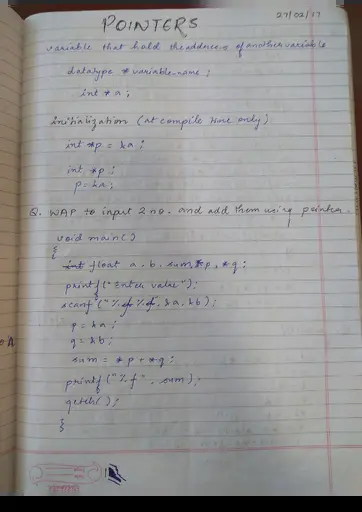 27/02/17
POINTERS
variable that hold the address of another variable
datatype * variable-name ;
int * a ;
initialization (at compile time only)
int *p = &a ;
int *p ;
p = &a ;
Q. WAP to input 2 no. and add them using pointer.
void main()
{
int float a, b, sum, *p, *q ;
printf("Enter value");
scanf("%f %f, &a, &b);
p = &a ;
q = &b ;
sum = *p + *q ;
printf("%f", sum);
getch( );
}